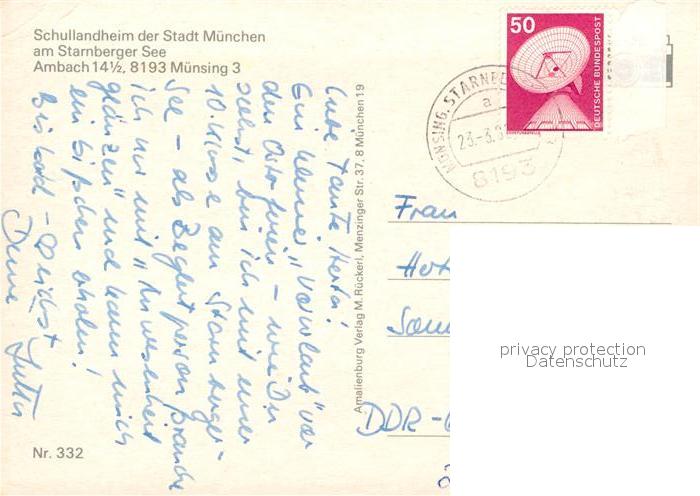 Schullandheim der Stadt München
am Starnberger See
Ambach 14½, 8193 Münsing 3
50
DEUTSCHE BUNDESPOST
MÜNSING, STARNB
a
23.-3.8
8193
Liebe Tante Herta!
Ein kleiner "Vorurlaub" vor
den Osterferien – wie Du
siehst, bin ich mit einer
10. Klasse am Starnberger-
See – als Begleitperson brauche
ich nur mit "Anwesenheit
glänzen" und kann mich
ein bißchen erholen!
Bis bald – herzlichst
Deine Jutta
Amalienburg Verlag M. Rückerl, Menzinger Str. 37, 8 München 19
Frau
Her
DDR-
privacy protection
Datenschutz
Nr. 332